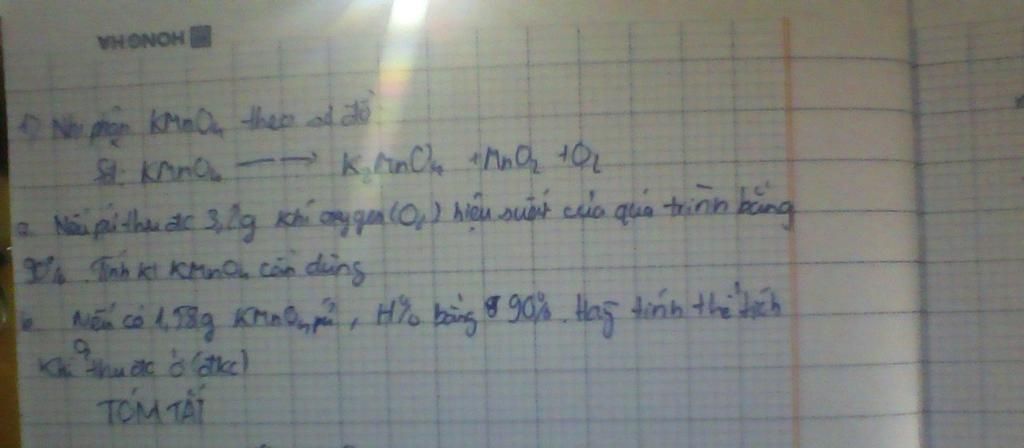 HONG HA
1) Nhiệt phân KMnO4 theo sơ đồ
KMnO4 ---> K2MnO4 + MnO2 + O2
a. Nếu pứ thu đc 3,2g khí oxygen (O2) hiệu suất của quá trình bằng
90%. Tính kl KMnO4 cần dùng
b. Nếu có 1,58g KMnO4 pứ, H% bằng 90%. Hãy tính thể tích
khí O2 thu đc ở (đkc)
TÓM TẮT